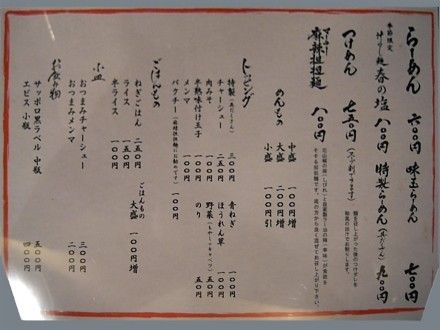 らーめん 六〇〇円
味玉らーめん 七〇〇円
季節限定
春の塩 八〇〇円
特製らーめん(具だくさん) 九〇〇円
つけめん 七五〇円
麻辣担担麺 八〇〇円
めんもの
中盛 一〇〇円増
大盛 二〇〇円増
小盛 一〇〇円引
トッピング
特製(具だくさん) 三〇〇円
チャーシュー 二五〇円
肉みそ 一五〇円
半熟味付け玉子 一〇〇円
メンマ 一〇〇円
パクチー 一〇〇円
青ねぎ 一〇〇円
ほうれん草 一〇〇円
野菜(もやし・キャベツ) 一〇〇円
のり 五〇円
ごはんもの
ねぎごはん 二五〇円
ライス 一五〇円
半ライス 一〇〇円
ごはんもの
大盛 一〇〇円増
小皿
おつまみチャーシュー 三〇〇円
おつまみメンマ 二〇〇円
お飲み物
サッポロ黒ラベル 中瓶 五〇〇円
エビス 小瓶 四〇〇円